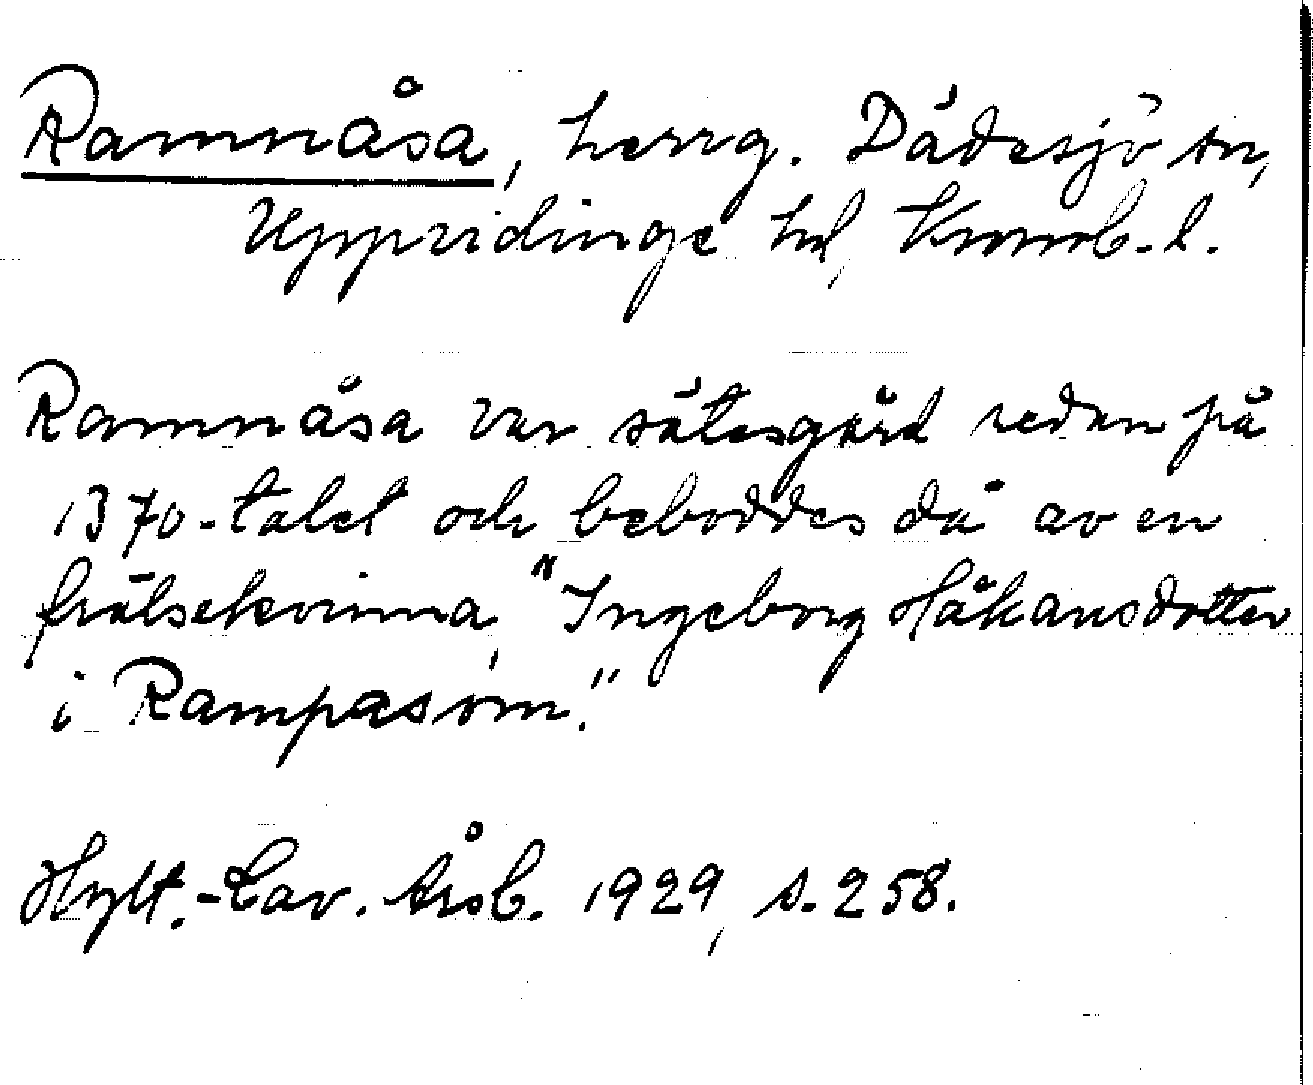 Ramnåsa, herrg. Dädesjö sn,
Uppvidinge hd, Kronob. l.
Ramnåsa var sätesgård redan på
1370-talet och beboddes då av en
frälsekvinna, "Ingeborg Håkansdotter
i Rampasom."
Hylt.-Cav. Årsb. 1929, s. 258.